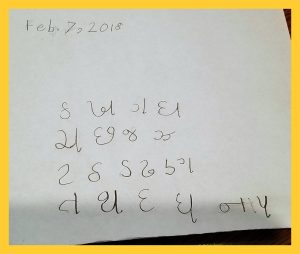 Feb. 7, 2018
ક ખ ગ ઘ
ચ છ જ ઝ
ટ ઠ ડ ઢ ણ
ત થ દ ધ ન